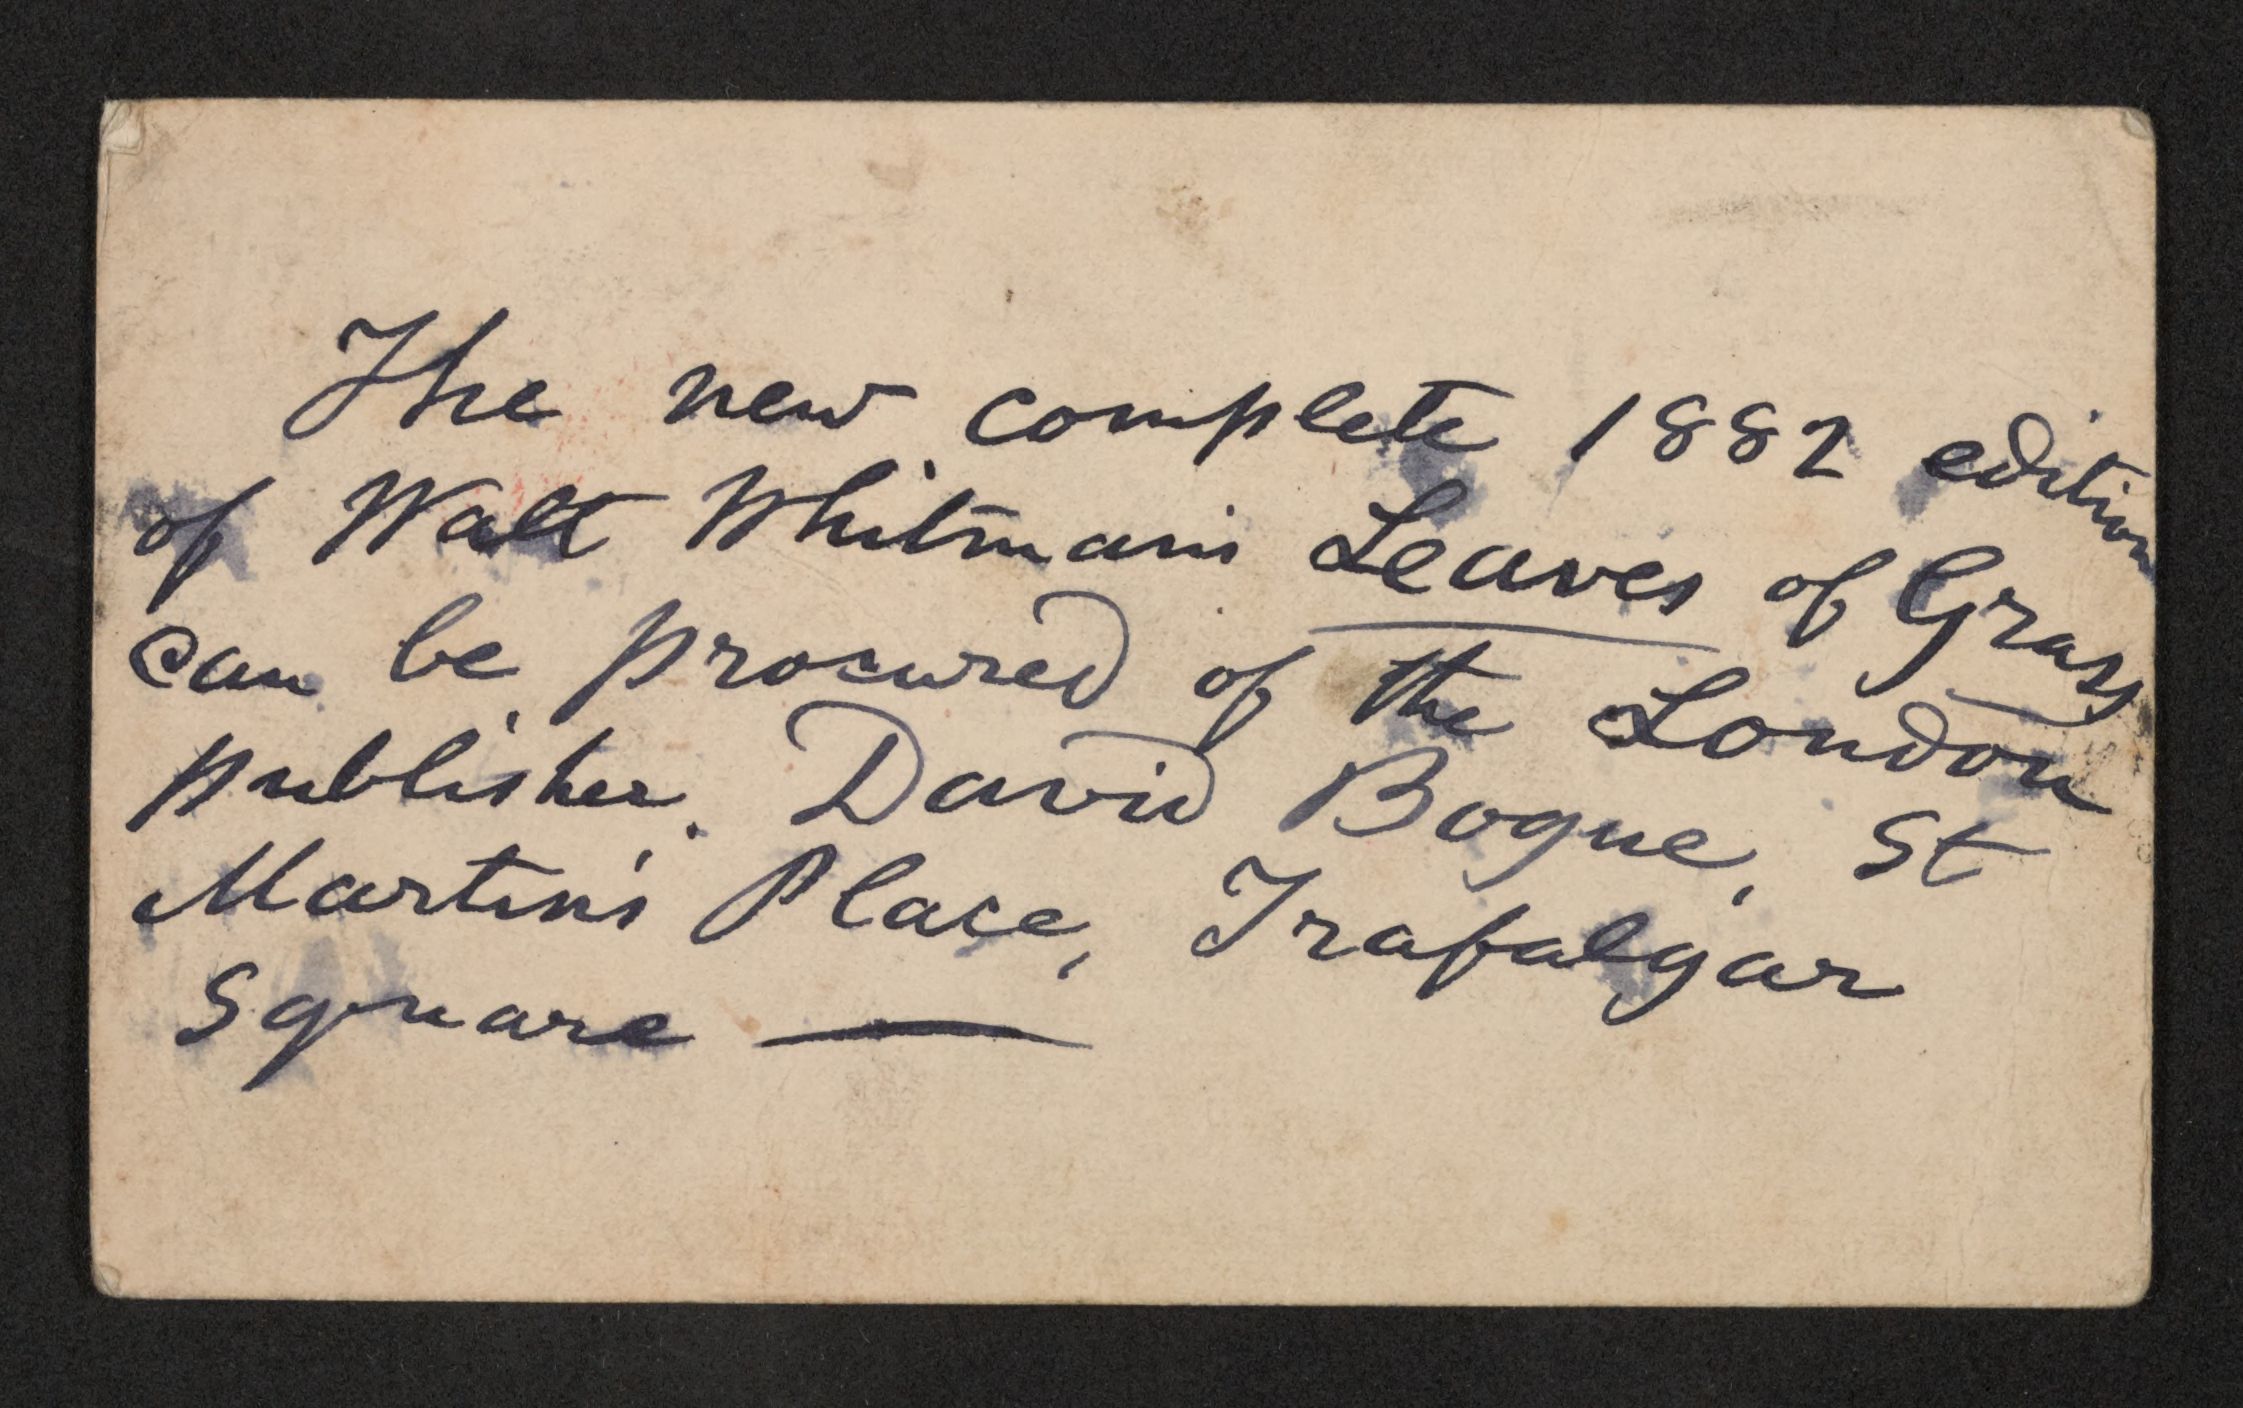 The new complete 1882 edition
of Walt Whitman's Leaves of Grass
can be procured of the London
publisher, David Bogue, St
Martin's Place, Trafalgar
Square —